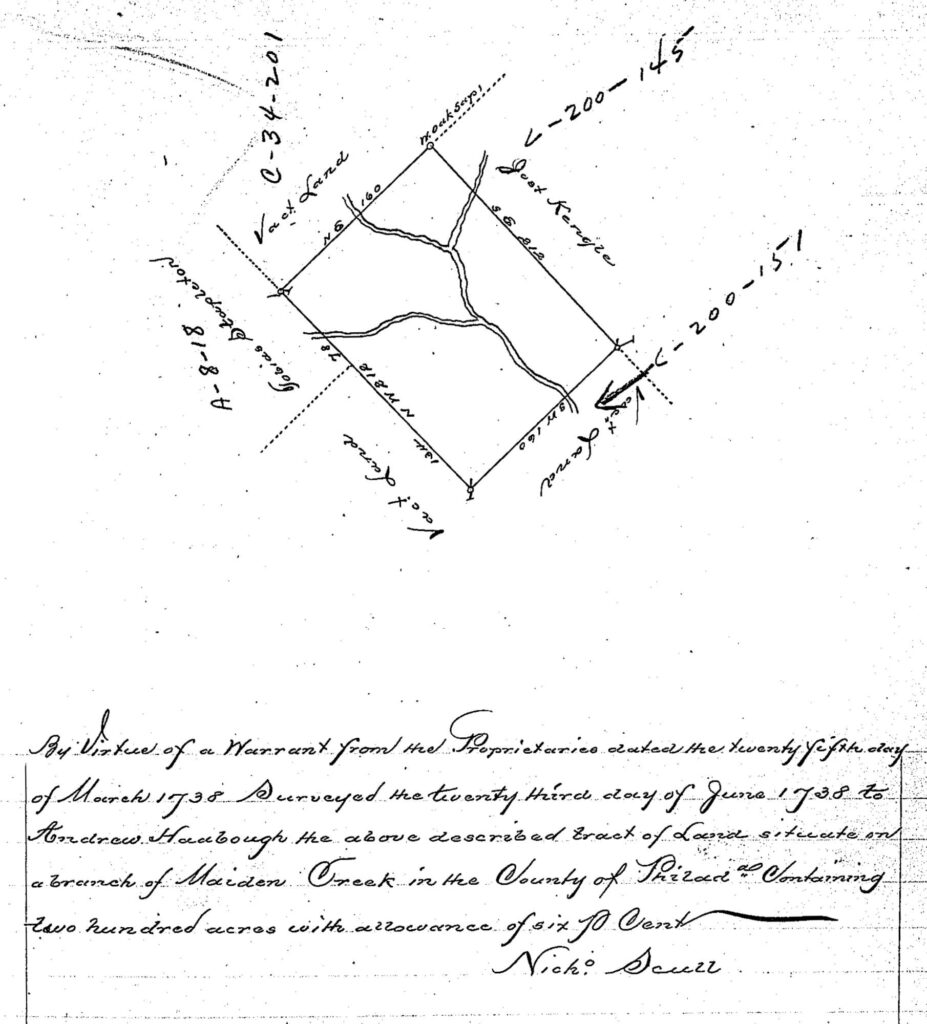 C-34-201
W. oak Sapl
C-200-145
Vact. Land
N E 160
Jost Kenige
S E 212
C-200-151
Tobias Stapleton
A-8-18
78
N W 212
134
S W 160
Vact. Land
Vact. Land
By Virtue of a Warrant from the Proprietaries dated the twenty fifth day
of March 1738 Surveyed the twenty third day of June 1738 to
Andrew Haabough the above described tract of Land situate on
a branch of Maiden Creek in the County of Philad.a Containing
two hundred acres with allowance of six P Cent
Nich.o Scull